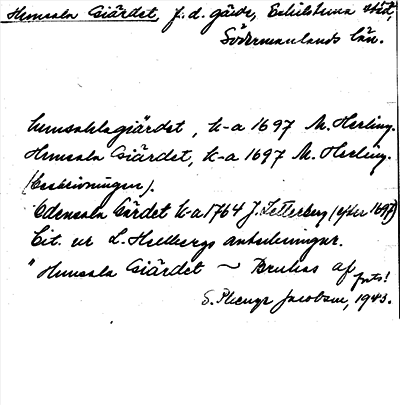 Hemsala Giärdet, f.d. gärde, Eskilstuna stad,
Södermanlands län.
hemsahlagiärdet, k-a 1697 M. Herling.
Hemsala Giärdet, k-a 1697 M. Herling.
(Beskrivningen).
Odensala Gärdet k-a 1764 J. Zetterberg (efter 1697)
Cit. ur L. Hellbergs anteckningar.
" Hemsala Giärdet ~ Brukas af
forts!
S. Plenge Jacobson, 1943.